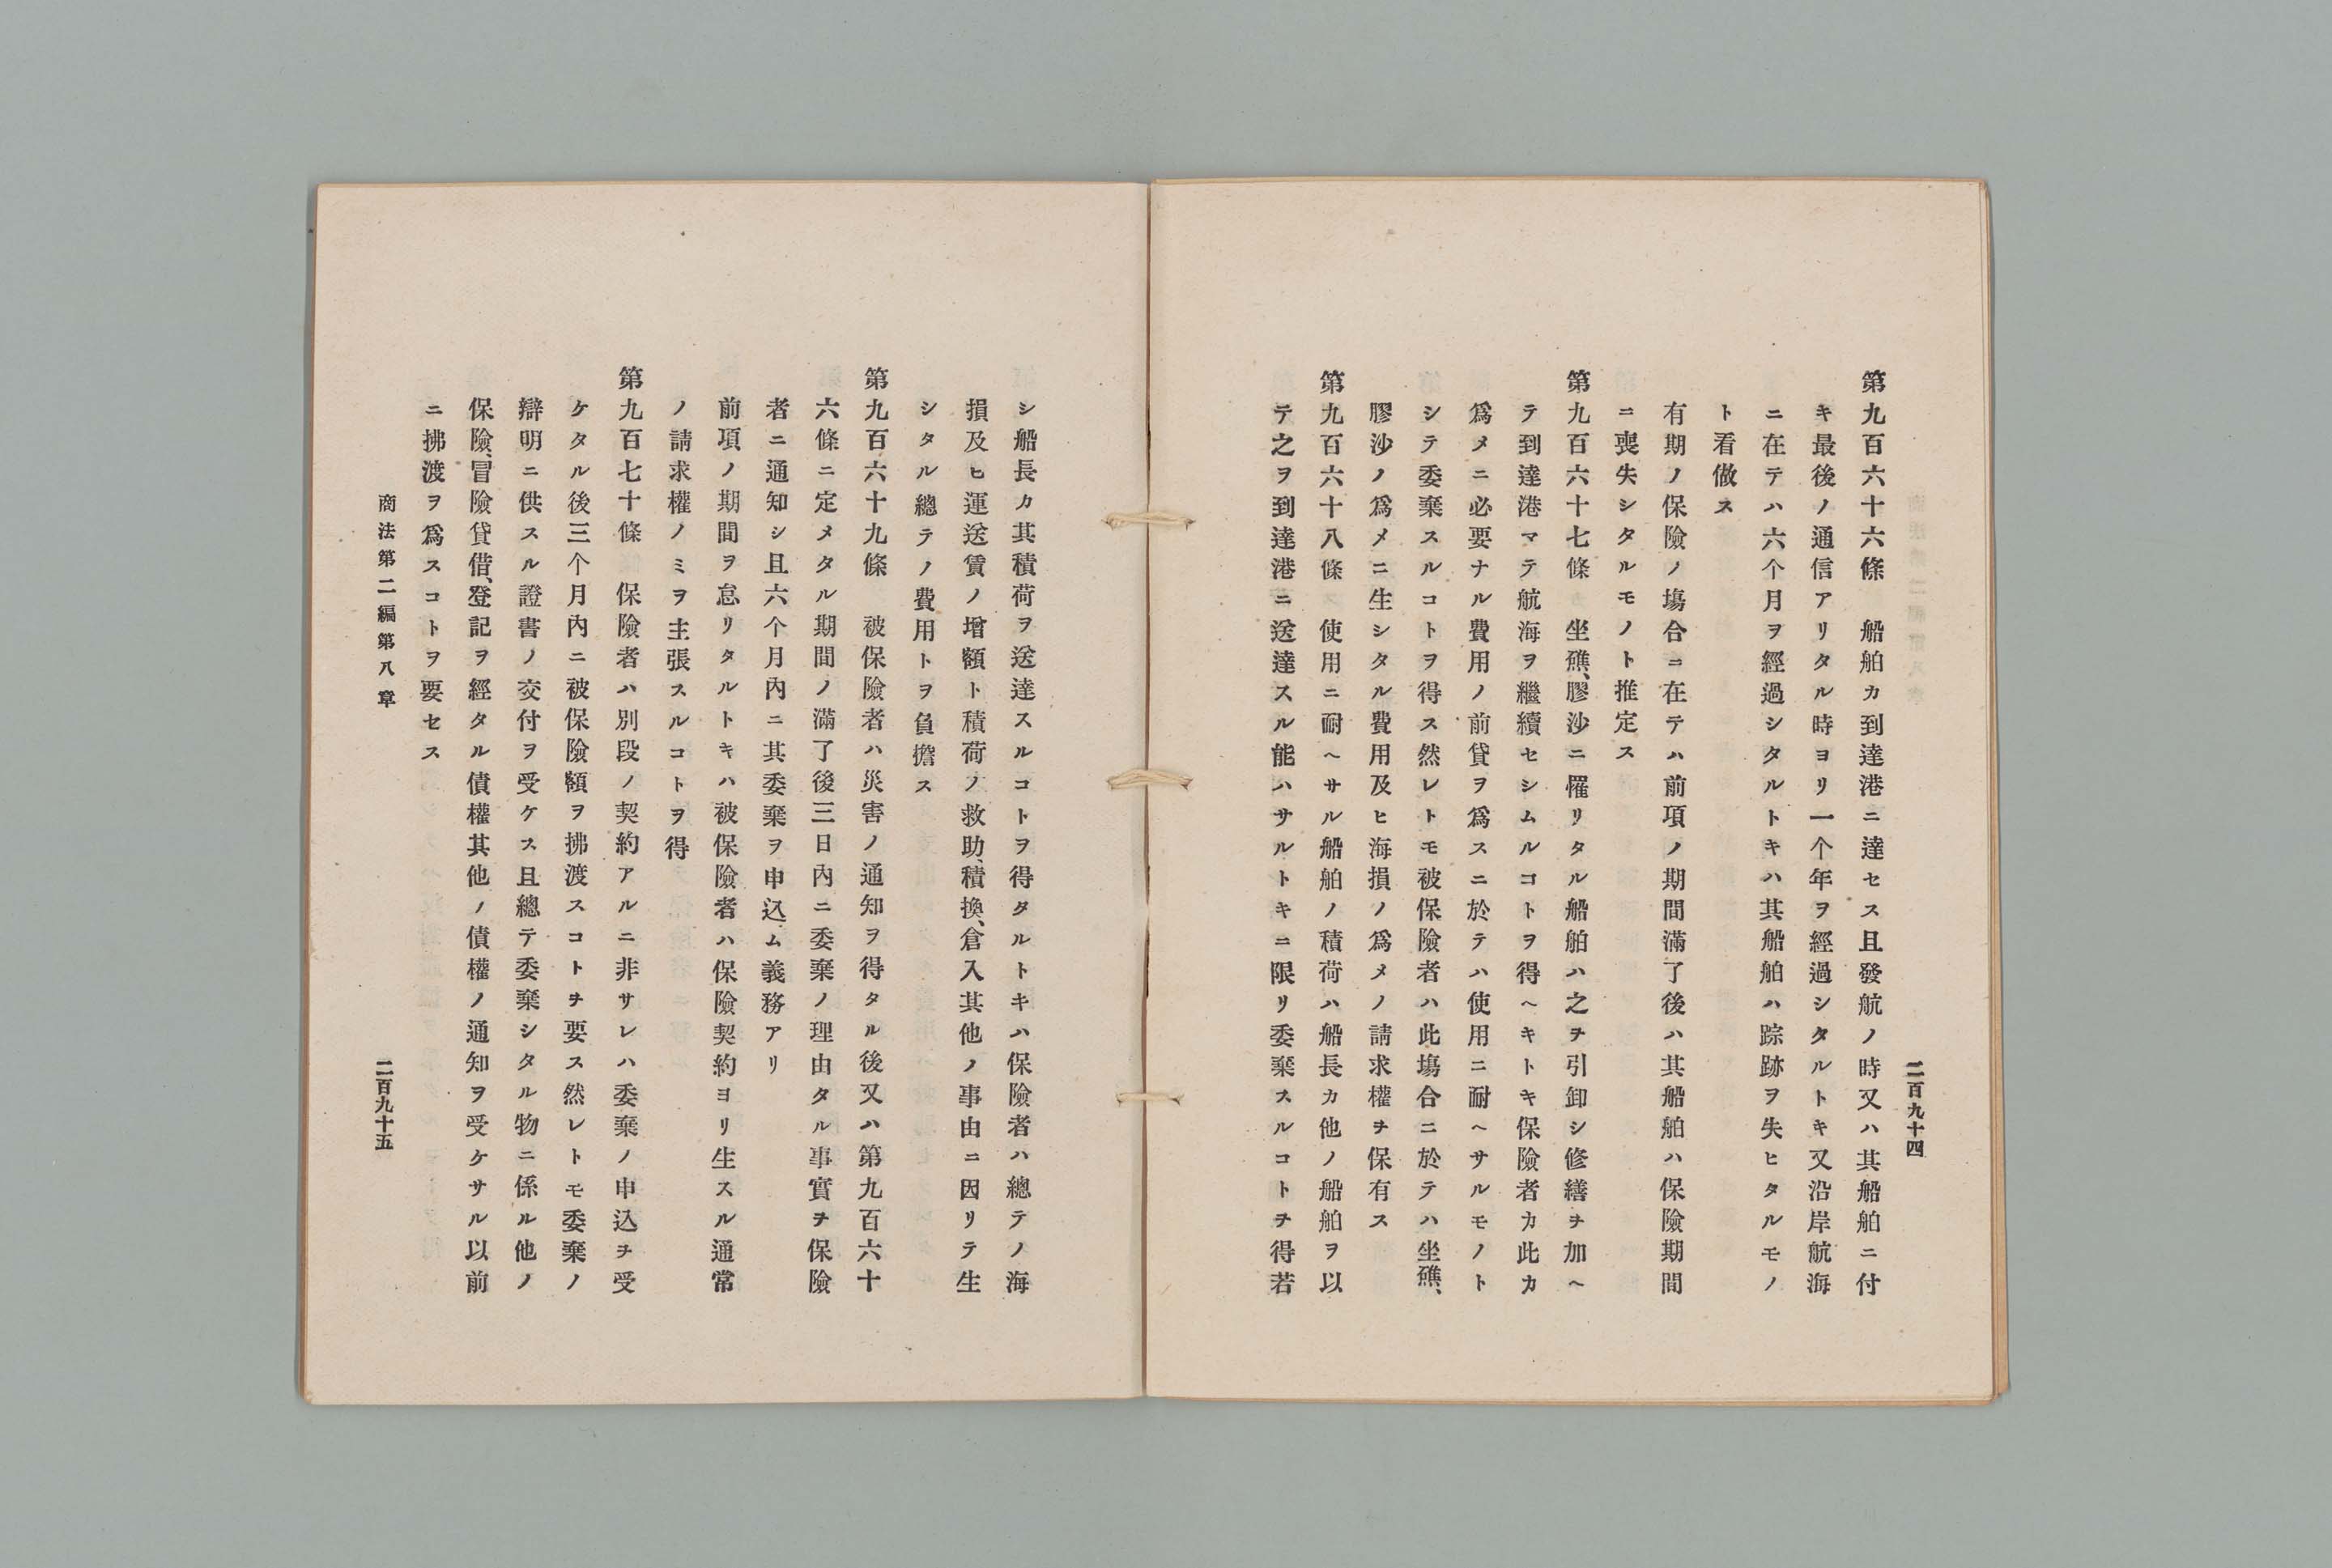 二百九十四
第九百六十六條　船舶カ到達港ニ達セス且發航ノ時又ハ其船舶ニ付
キ最後ノ通信アリタル時ヨリ一个年ヲ經過シタルトキ又沿岸航海
ニ在テハ六个月ヲ經過シタルトキハ其船舶ハ踪跡ヲ失ヒタルモノ
ト看做ス
有期ノ保險ノ塲合ニ在テハ前項ノ期間滿了後ハ其船舶ハ保險期間
ニ喪失シタルモノト推定ス
第九百六十七條　坐礁、膠沙ニ罹リタル船舶ハ之ヲ引卸シ修繕ヲ加ヘ
テ到達港マテ航海ヲ繼續セシムルコトヲ得ヘキトキ保險者カ此カ
爲メニ必要ナル費用ノ前貸ヲ爲スニ於テハ使用ニ耐ヘサルモノト
シテ委棄スルコトヲ得ス然レトモ被保險者ハ此塲合ニ於テハ坐礁、
膠沙ノ爲メニ生シタル費用及ヒ海損ノ爲メノ請求權ヲ保有ス
第九百六十八條　使用ニ耐ヘサル船舶ノ積荷ハ船長カ他ノ船舶ヲ以
テ之ヲ到達港ニ送達スル能ハサルトキニ限リ委棄スルコトヲ得若
シ船長カ其積荷ヲ送達スルコトヲ得タルトキハ保險者ハ總テノ海
損及ヒ運送賃ノ增額ト積荷ノ救助、積換、倉入其他ノ事由ニ因リテ生
シタル總テノ費用トヲ負擔ス
第九百六十九條　被保險者ハ災害ノ通知ヲ得タル後又ハ第九百六十
六條ニ定メタル期間ノ滿了後三日內ニ委棄ノ理由タル事實ヲ保險
者ニ通知シ且六个月內ニ其委棄ヲ申込ム義務アリ
前項ノ期間ヲ怠リタルトキハ被保險者ハ保險契約ヨリ生スル通常
ノ請求權ノミヲ主張スルコトヲ得
第九百七十條　保險者ハ別段ノ契約アルニ非サレハ委棄ノ申込ヲ受
ケタル後三个月內ニ被保險額ヲ拂渡スコトヲ要ス然レトモ委棄ノ
辯明ニ供スル證書ノ交付ヲ受ケス且總テ委棄シタル物ニ係ル他ノ
保險、冒險貸借、登記ヲ經タル債權其他ノ債權ノ通知ヲ受ケサル以前
ニ拂渡ヲ爲スコトヲ要セス
商法第二編第八章
二百九十五